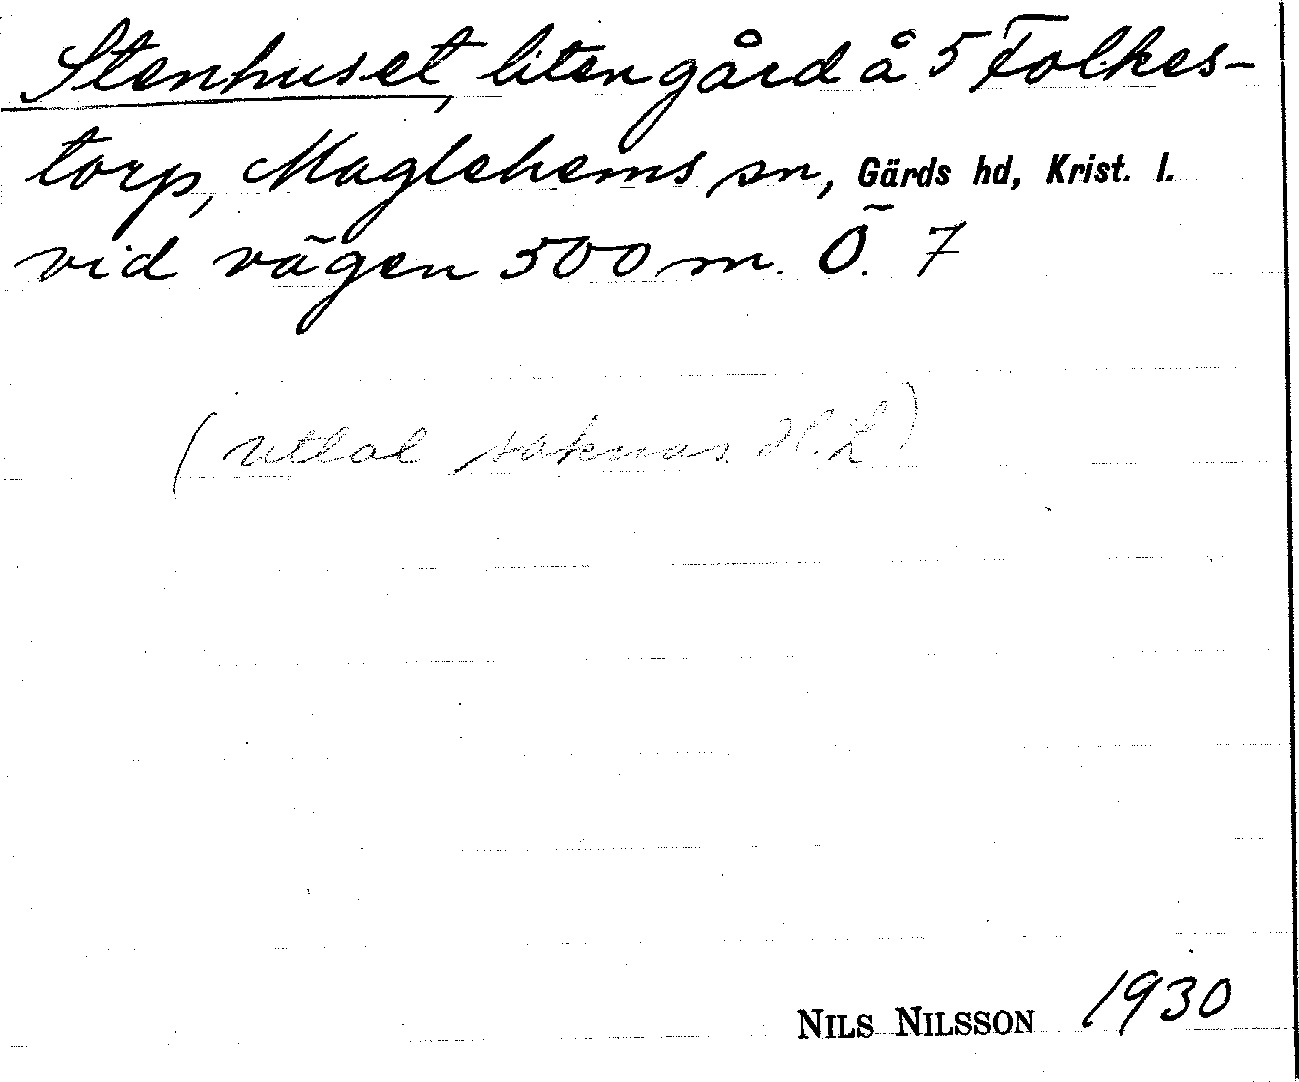 Stenhuset, liten gård å 5 Folkes-
torp, Maglehems sn, Gärds hd, Krist. l.
vid vägen 500 m. Ö. 7
(uttal saknas H.L)
NILS NILSSON 1930